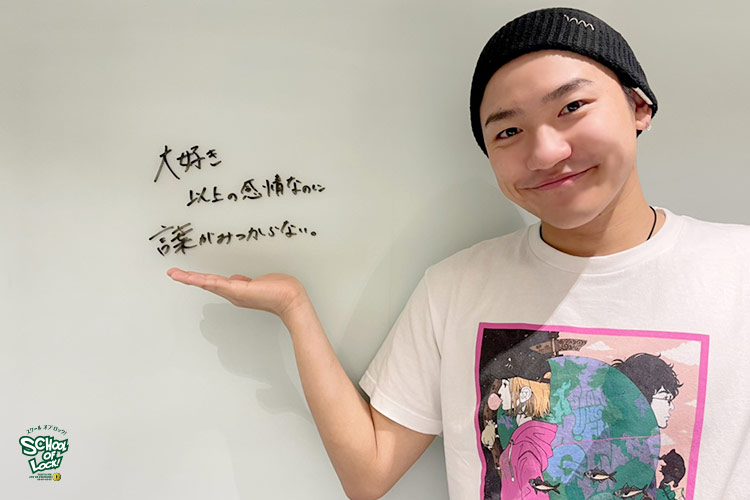 大好き
以上の感情なのに
言葉がみつからない。
スクールオブロック!
SCHOOL
OF
LOCK!